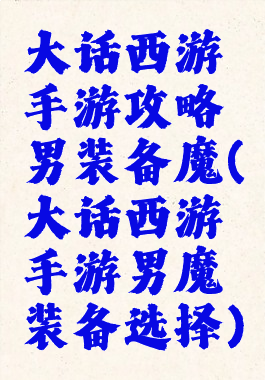 大话西游
手游攻略
男装备魔(
大话西游
手游男魔
装备选择)